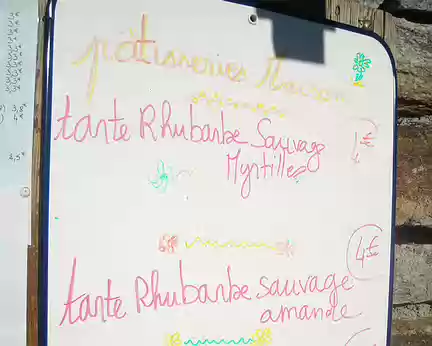 pâtisseries Maison
tarte Rhubarbe Sauvage
Myrtilles
4€
4€
tarte Rhubarbe sauvage
amande